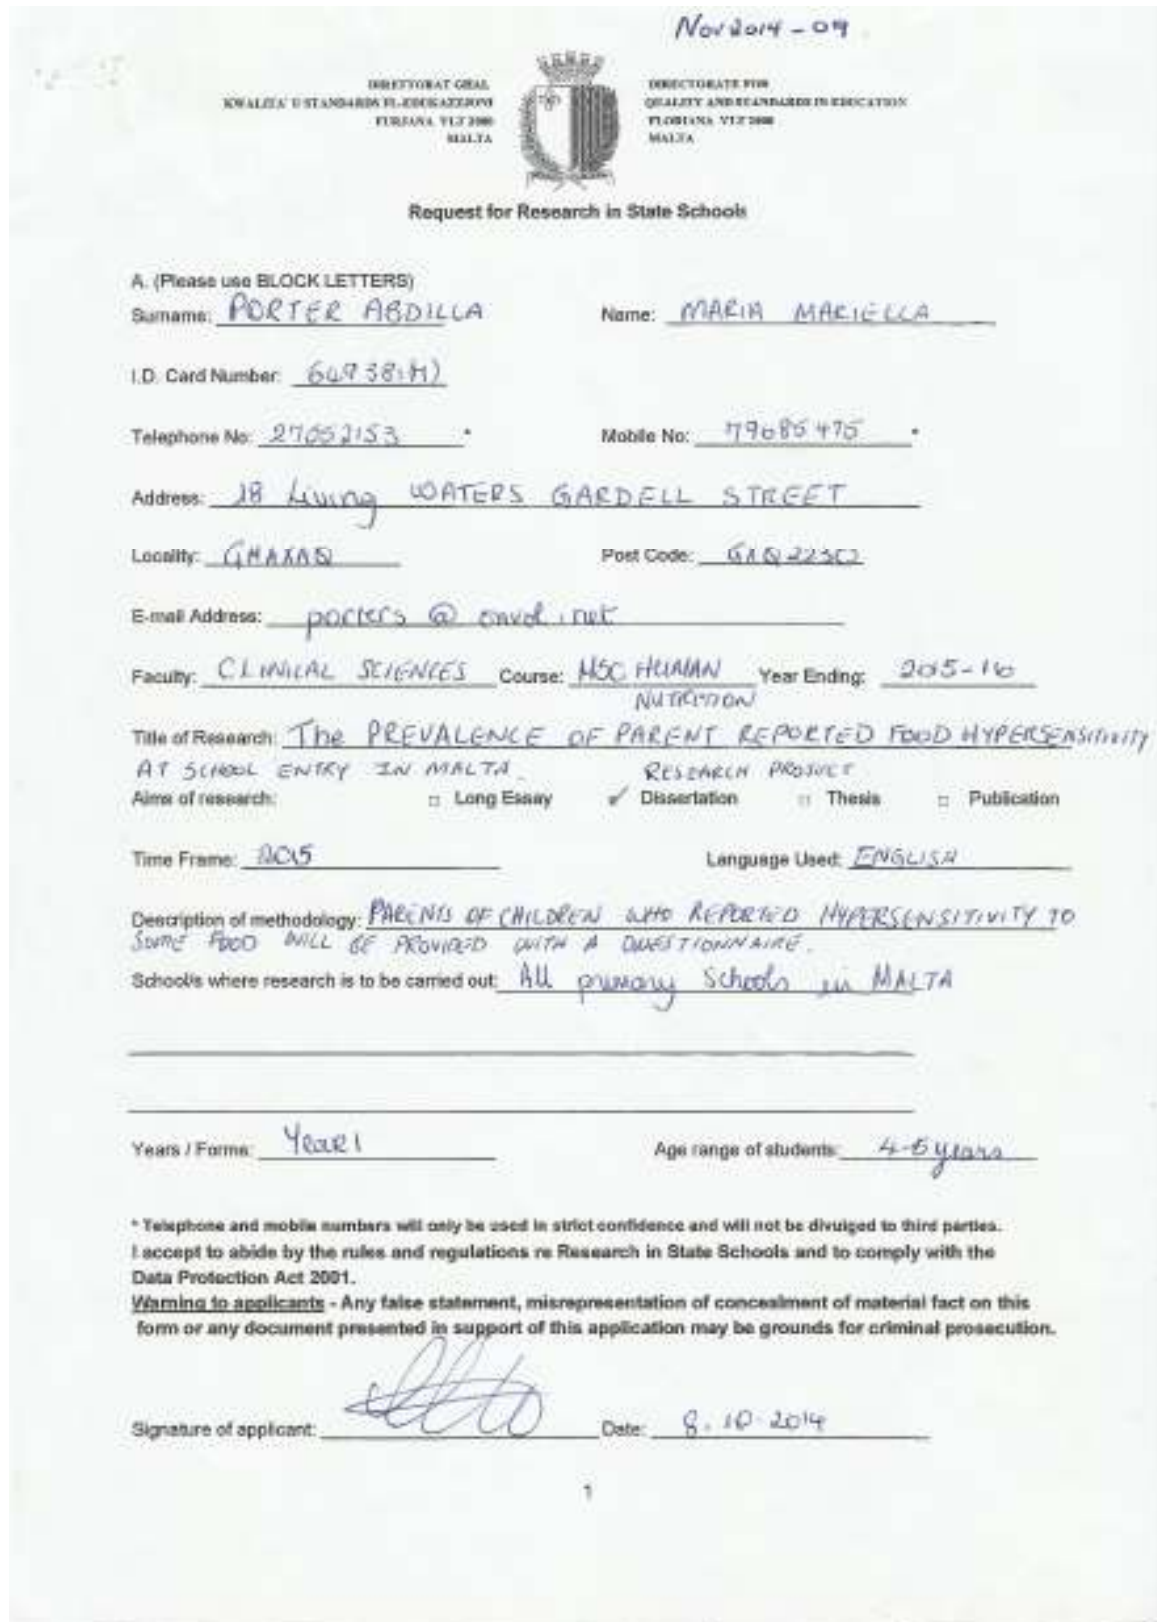 Nov 2014 - 09
DIRETTORAT GĦAL
KWALITA' U STANDARDS FL-EDUKAZZJONI
FURJANA VLT 2000
MALTA
DIRECTORATE FOR
QUALITY AND STANDARDS IN EDUCATION
FLORIANA VLT 2000
MALTA
Request for Research in State Schools
A. (Please use BLOCK LETTERS)
Surname: PORTER ABDILLA Name: MARIA MARIELLA
I.D. Card Number:
Telephone No: 27052153 * Mobile No: 79685475 *
Address: 18 Living WATERS GARDELL STREET
Locality: GHAXAQ Post Code:
E-mail Address: porters @ onvol.net
Faculty: CLINICAL SCIENCES Course: MSC HUMAN NUTRITION Year Ending: 2015-16
Title of Research: The PREVALENCE OF PARENT REPORTED FOOD HYPERSENSITIVITY
AT SCHOOL ENTRY IN MALTA. RESEARCH PROJECT
Aims of research: Long Essay ✓ Dissertation Thesis Publication
Time Frame: 2015 Language Used: ENGLISH
Description of methodology: PARENTS OF CHILDREN WHO REPORTED HYPERSENSITIVITY TO
SOME FOOD WILL BE PROVIDED WITH A QUESTIONNAIRE.
School/s where research is to be carried out: All primary Schools in MALTA
Years / Forms: Year 1 Age range of students: 4-5 years
* Telephone and mobile numbers will only be used in strict confidence and will not be divulged to third parties.
I accept to abide by the rules and regulations re Research in State Schools and to comply with the
Data Protection Act 2001.
Warning to applicants - Any false statement, misrepresentation of concealment of material fact on this
form or any document presented in support of this application may be grounds for criminal prosecution.
Signature of applicant: Date: 8.10.2014
1